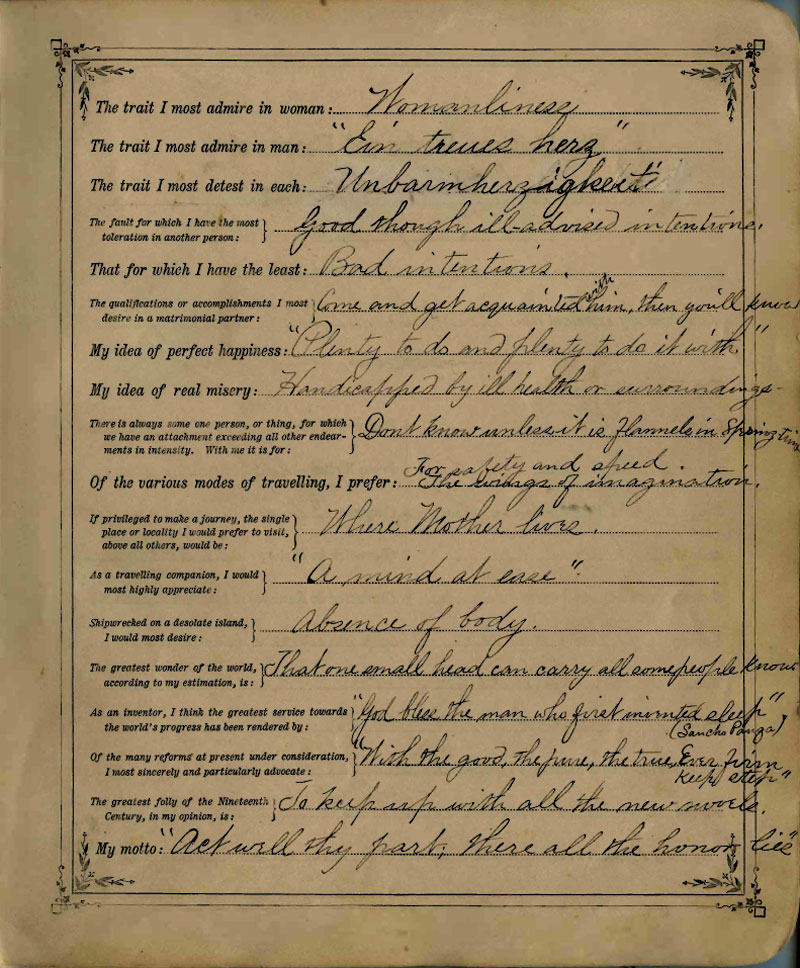 The trait I most admire in woman: Womanliness
The trait I most admire in man: "Ein treues herz"
The trait I most detest in each: Unbarmherzigkeit
The fault for which I have the most
toleration in another person: } Good though ill-advised intentions.
That for which I have the least: Bad intentions.
The qualifications or accomplishments I most
desire in a matrimonial partner: } Come and get acquainted with him, then you'll know
My idea of perfect happiness: "Plenty to do and plenty to do it with."
My idea of real misery: Handicapped by ill health or surroundings-
There is always some one person, or thing, for which
we have an attachment exceeding all other endear-
ments in intensity. With me it is for: } Dont know unless it is flannels in Spring time
For safety and speed.
Of the various modes of travelling, I prefer: The wings of imagination.
If privileged to make a journey, the single
place or locality I would prefer to visit,
above all others, would be: } Where Mother lives.
As a travelling companion, I would
most highly appreciate: } "A mind at ease".
Shipwrecked on a desolate island,
I would most desire: } Absence of body.
The greatest wonder of the world,
according to my estimation, is: } That one small head can carry all some people know
As an inventor, I think the greatest service towards
the world's progress has been rendered by: } "God bless the man who first invented sleep"
(Sancho Panza)
Of the many reforms at present under consideration,
I most sincerely and particularly advocate: } "With the good, the pure, the true, Ever firm
Keep step"
The greatest folly of the Nineteenth
Century, in my opinion, is: } To keep up with all the new novels.
My motto: "Act well thy part, there all the honor lies"